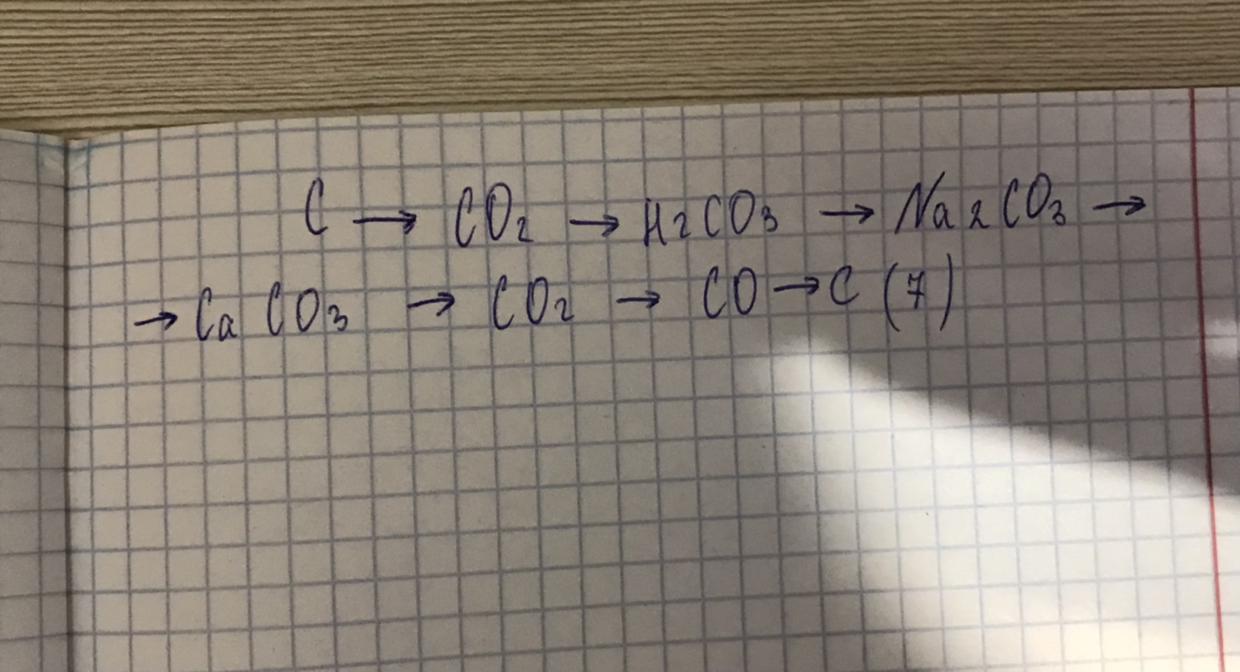 C → CO₂ → H₂CO₃ → Na₂CO₃ →
→ CaCO₃ → CO₂ → CO → C (7)